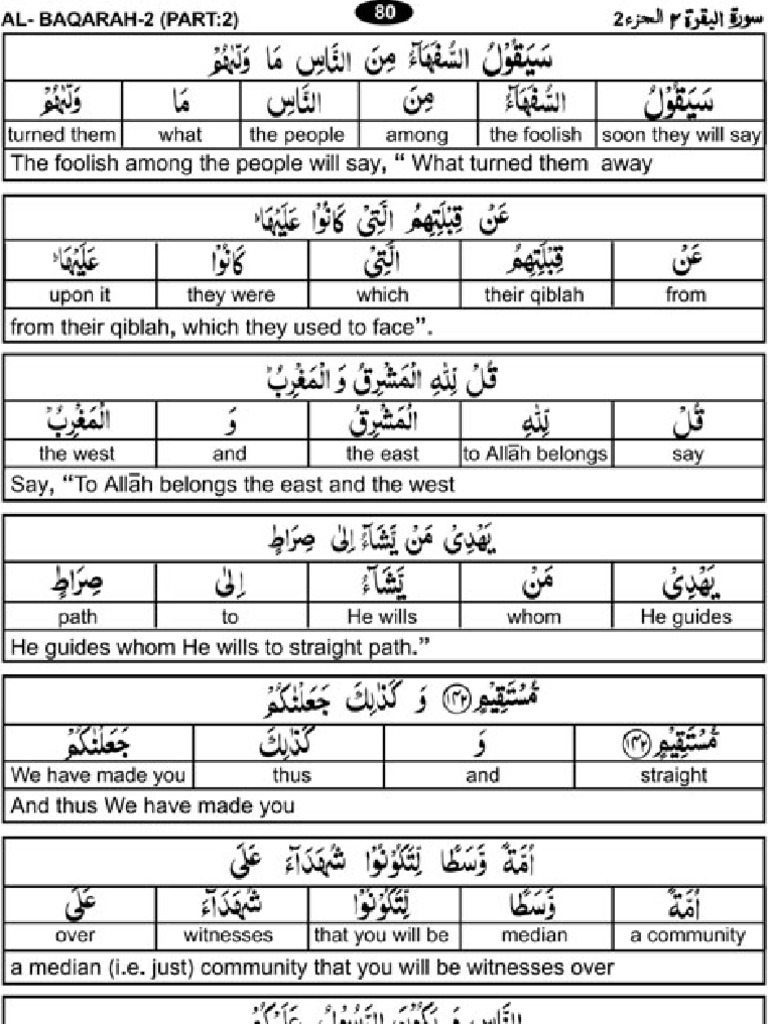 AL- BAQARAH-2 (PART:2) 80 سورة البقرة ٢ الجزء 2
سَيَقُوْلُ السُّفَهَآءُ مِنَ النَّاسِ مَا وَلّٰىهُمْ
سَيَقُوْلُ السُّفَهَآءُ مِنَ النَّاسِ مَا وَلّٰىهُمْ
turned them what the people among the foolish soon they will say
The foolish among the people will say, “ What turned them away
عَنْ قِبْلَتِهِمُ الَّتِيْ كَانُوْا عَلَيْهَا ؕ
عَنْ قِبْلَتِهِمُ الَّتِيْ كَانُوْا عَلَيْهَا ؕ
upon it they were which their qiblah from
from their qiblah, which they used to face”.
قُلْ لِلّٰهِ الْمَشْرِقُ وَ الْمَغْرِبُ ؕ
قُلْ لِلّٰهِ الْمَشْرِقُ وَ الْمَغْرِبُ ؕ
the west and the east to Allāh belongs say
Say, “To Allāh belongs the east and the west
يَهْدِيْ مَنْ يَّشَآءُ اِلٰى صِرَاطٍ
يَهْدِيْ مَنْ يَّشَآءُ اِلٰى صِرَاطٍ
path to He wills whom He guides
He guides whom He wills to straight path.”
مُّسْتَقِيْمٍ ﴿١٤٢﴾ وَ كَذٰلِكَ جَعَلْنٰكُمْ
مُّسْتَقِيْمٍ ﴿١٤٢﴾ وَ كَذٰلِكَ جَعَلْنٰكُمْ
We have made you thus and straight
And thus We have made you
اُمَّةً وَّسَطًا لِّتَكُوْنُوْا شُهَدَآءَ عَلَى
اُمَّةً وَّسَطًا لِّتَكُوْنُوْا شُهَدَآءَ عَلَى
over witnesses that you will be median a community
a median (i.e. just) community that you will be witnesses over
النَّاسِ وَ يَكُوْنَ الرَّسُوْلُ عَلَيْكُمْ